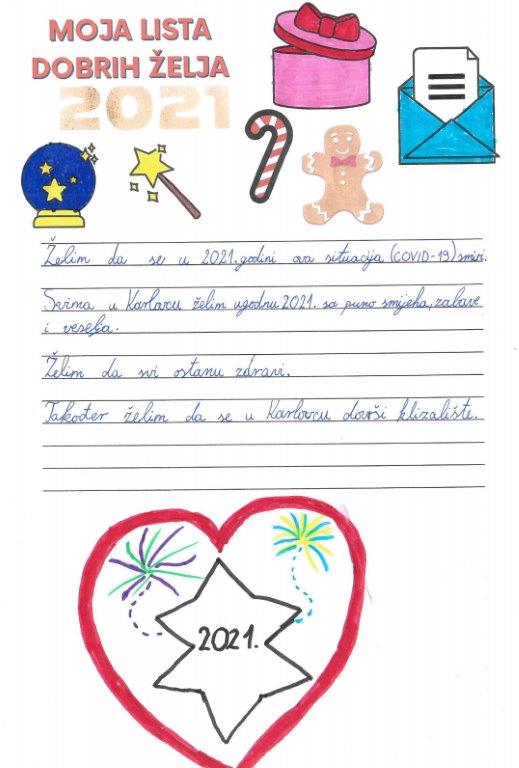 MOJA LISTA
DOBRIH ŽELJA
2021
Želim da se u 2021. godini ova situacija (COVID-19) smiri.
Svima u Karlovcu želim ugodnu 2021. sa puno smijeha, zabave
i veselja.
Želim da svi ostanu zdravi.
Također želim da se u Karlovcu dovrši klizalište.
2021.